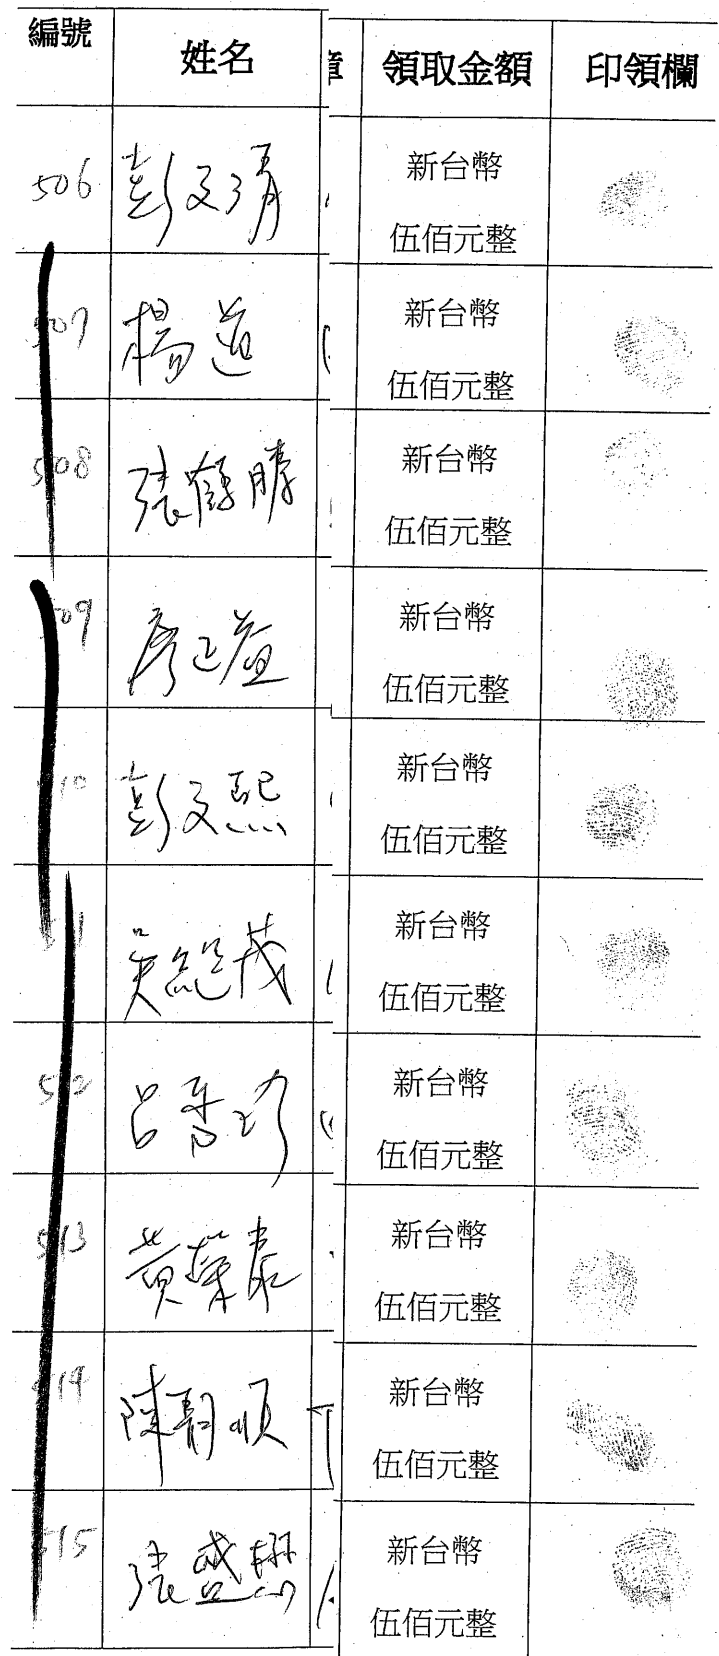 編號 姓名 章 領取金額 印領欄
506 彭文清 新台幣
伍佰元整
507 楊道 新台幣
伍佰元整
508 張鶴騰 新台幣
伍佰元整
509 廖正益 新台幣
伍佰元整
10 彭文熙 新台幣
伍佰元整
吳總茂 新台幣
伍佰元整
512 呂秀珍 新台幣
伍佰元整
513 黃榮泰 新台幣
伍佰元整
514 陳朝順 新台幣
伍佰元整
515 張盛懋 新台幣
伍佰元整